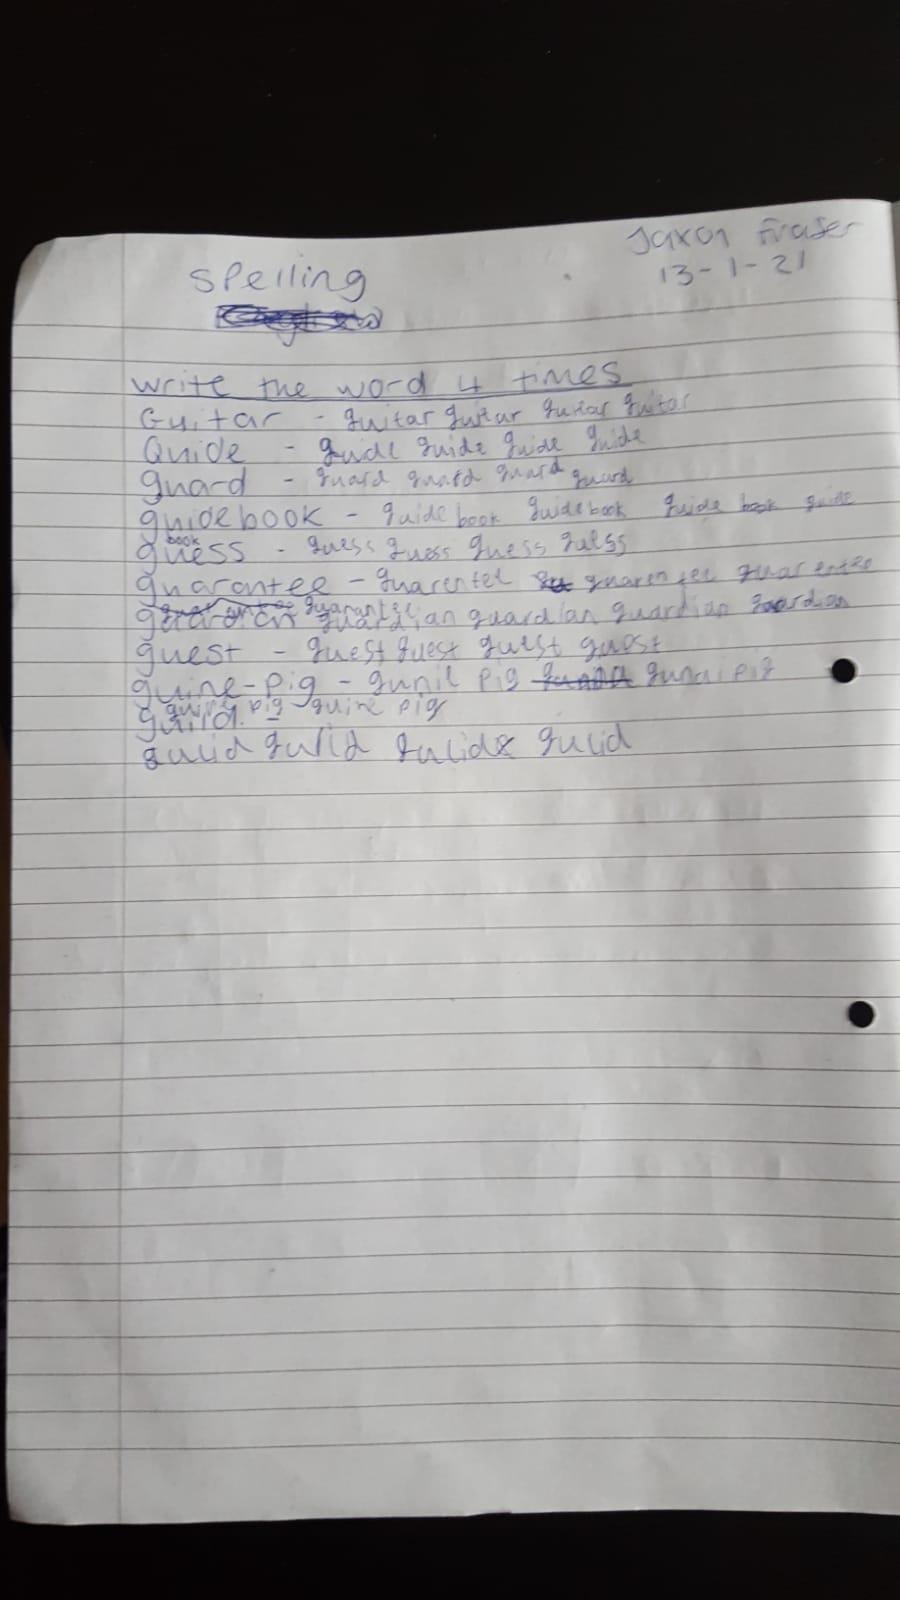 Jaxon Fraser
13-1-21
Spelling
write the word 4 times
Guitar - guitar guitar guitar guitar
Quide - guide guide guide guide
guard - guard guard guard guard
guidebook - guide book guidebook guide book guide
book
guess - guess guess guess guess
guarantee - guarentee guarentee guarentee
guarantee
guardian guardian guardian guardian
guest - guest guest guest guest
guine-pig - gunil pig gunai pig
guine pig guine pig
guild.
guild guild gulid gulid